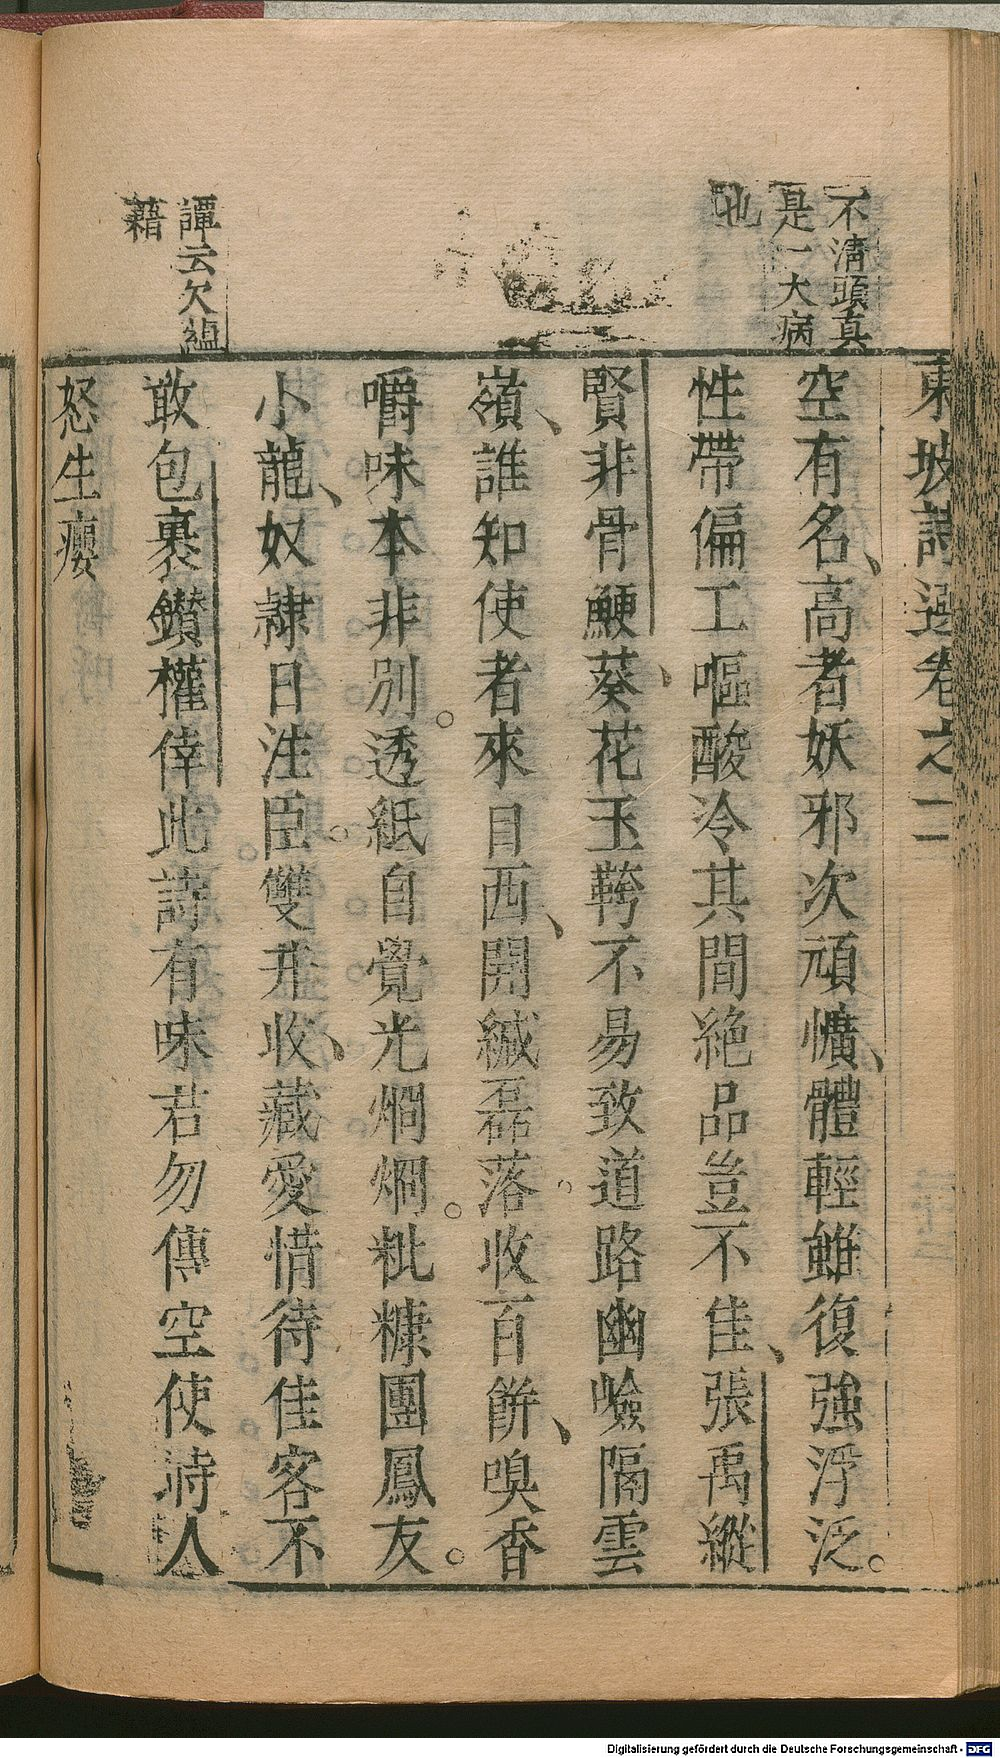 東坡詩選卷之二
不清頭真
是一大病
也
空有名高者妖邪次頑懭體輕雖復強浮泛
性帶偏工嘔酸冷其間絶品豈不佳張禹縱
賢非骨鯁葵花玉䩞不易致道路幽嶮隔雲
嶺誰知使者來自西開緘磊落收百餅嗅香
嚼味本非別透紙自覺光烱烱粃糠團鳳友
小龍奴隷日注臣雙井收藏愛惜待佳客不
敢包裹鑚權倖此詩有味君勿傳空使時人
怒生癭
譚云欠緼
藉
Digitalisierung gefördert durch die Deutsche Forschungsgemeinschaft - DFG